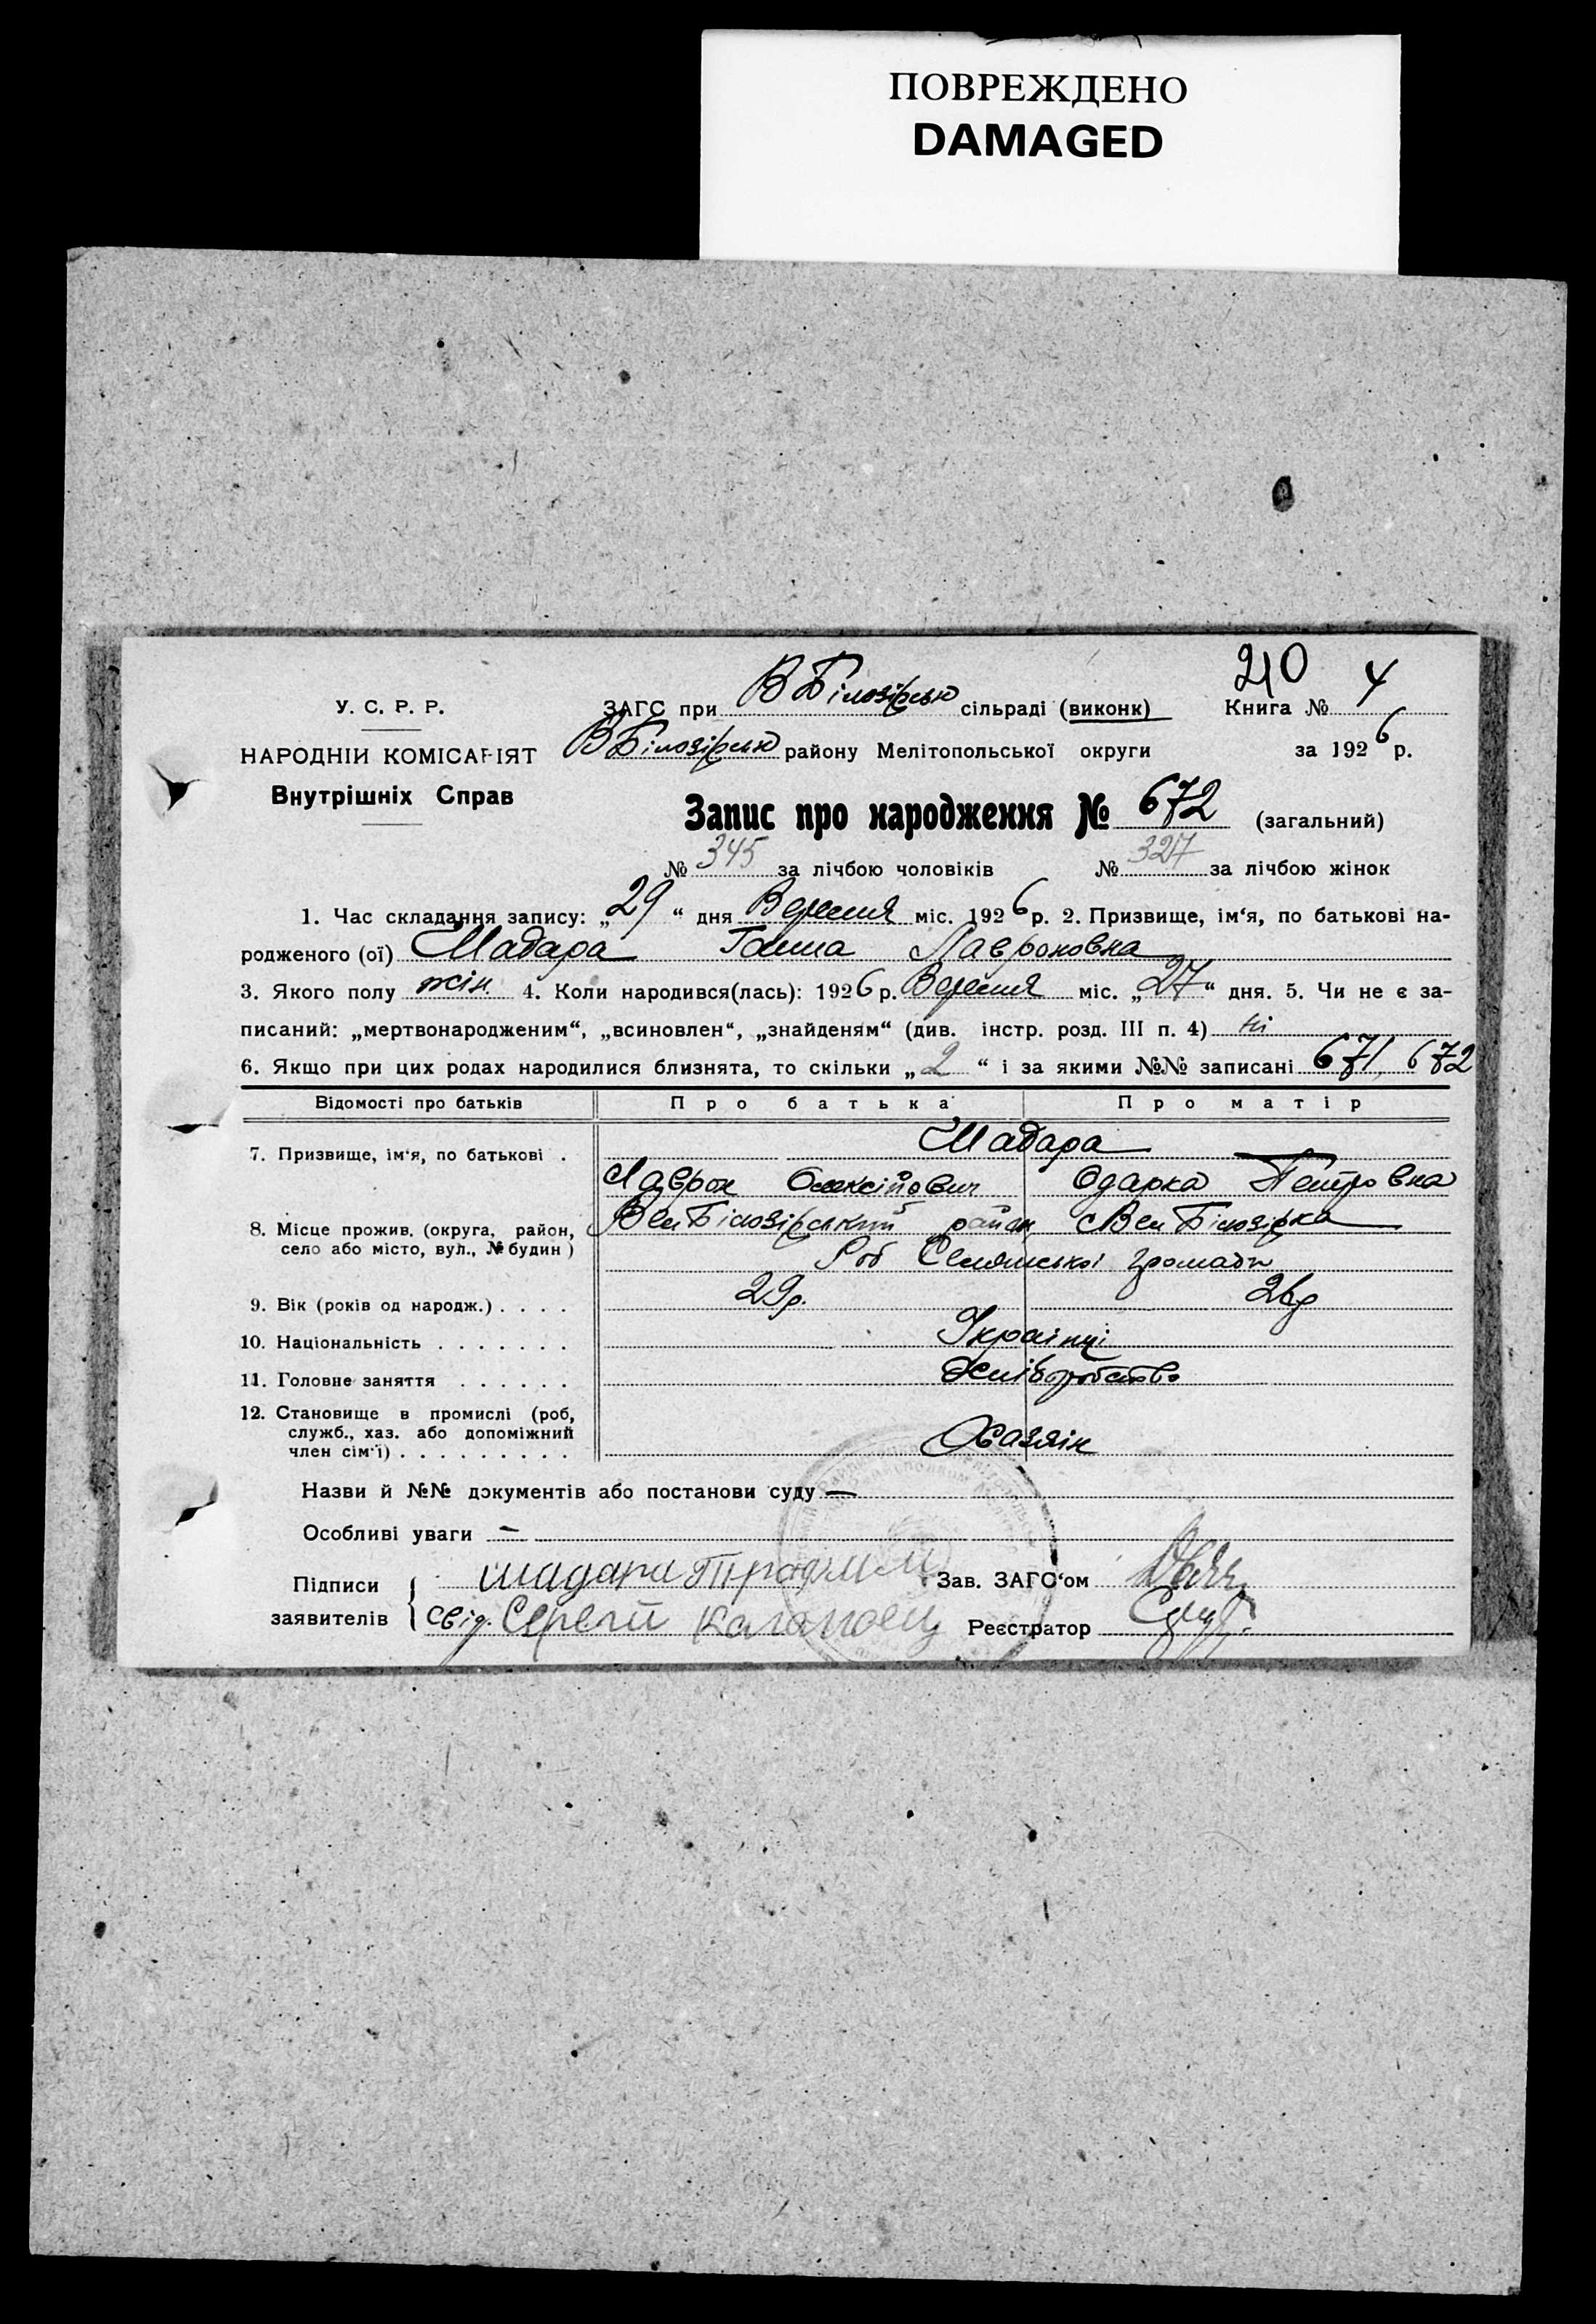 ПОВРЕЖДЕНО
DAMAGED
210
У. С. Р. Р.
ЗАГС при В Білозірськ сільраді (виконк) Книга № 4
НАРОДНІЙ КОМІСАРІЯТ
В Білозірськ району Мелітопольської округи за 1926 р.
Внутрішніх Справ
Запис про народження № 672 (загальний)
№ 345 за лічбою чоловіків № 327 за лічбою жінок
1. Час складання запису: „29“ дня Вересня міс. 1926 р. 2. Призвище, ім‘я, по батькові на-
родженого (ої) Шадара Ганна Лавроновна
3. Якого полу жін. 4. Коли народився(лась): 1926 р. Вересня міс. „27“ дня. 5. Чи не є за-
писаний: „мертвонародженим“, „всиновлен“, „знайденям“ (див. інстр. розд. III п. 4) ні
6. Якщо при цих родах народилися близнята, то скільки „2“ і за якими №№ записані 671, 672
Відомості про батьків Про батька Про матір
7. Призвище, ім‘я, по батькові . Шадара
Лаврон Олексійович Одарка Петровна
8. Місце прожив. (округа, район, село або місто, вул., № будин) Вел Білозірський район с Вел Білозірка
Роб Селянської громади
9. Вік (років од народж.) . . . . 29р. 26р
10. Національність . . . . . . . Українці
11. Головне заняття . . . . . . Хліборобство
12. Становище в промислі (роб,
служб., хаз. або допоміжний
член сім‘ї) . . . . . . . . . Хазяїн
Назви й №№ документів або постанови суду —
Особливі уваги —
Підписи шадара Зав. ЗАГС‘ом
заявителів свід. Сергей Реєстратор